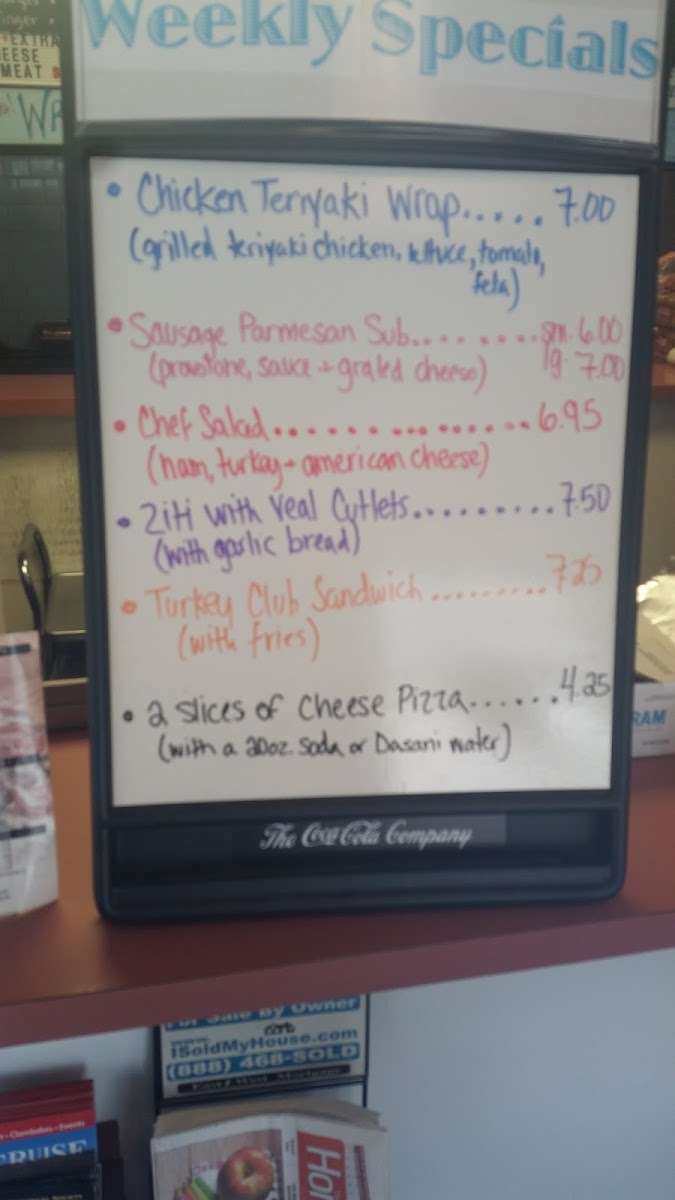 EXTRA
MEAT $
Weekly Specials
• Chicken Teriyaki Wrap..... 7.00
(grilled teriyaki chicken, lettuce, tomato,
feta)
• Sausage Parmesan Sub......... sm. 6.00
(provolone, sauce + grated cheese) lg. 7.00
• Chef Salad.................. 6.95
(ham, turkey + american cheese)
• Ziti with Veal Cutlets.......... 7.50
(with garlic bread)
• Turkey Club Sandwich.......... 7.25
(with fries)
• 2 slices of Cheese Pizza....... 4.25
(with a 20oz. soda or Dasani water)
The Coca-Cola Company
RAM
For Sale By Owner
ISoldMyHouse.com
(888) 468-SOLD
East / West Mortgage
Clambakes • Events